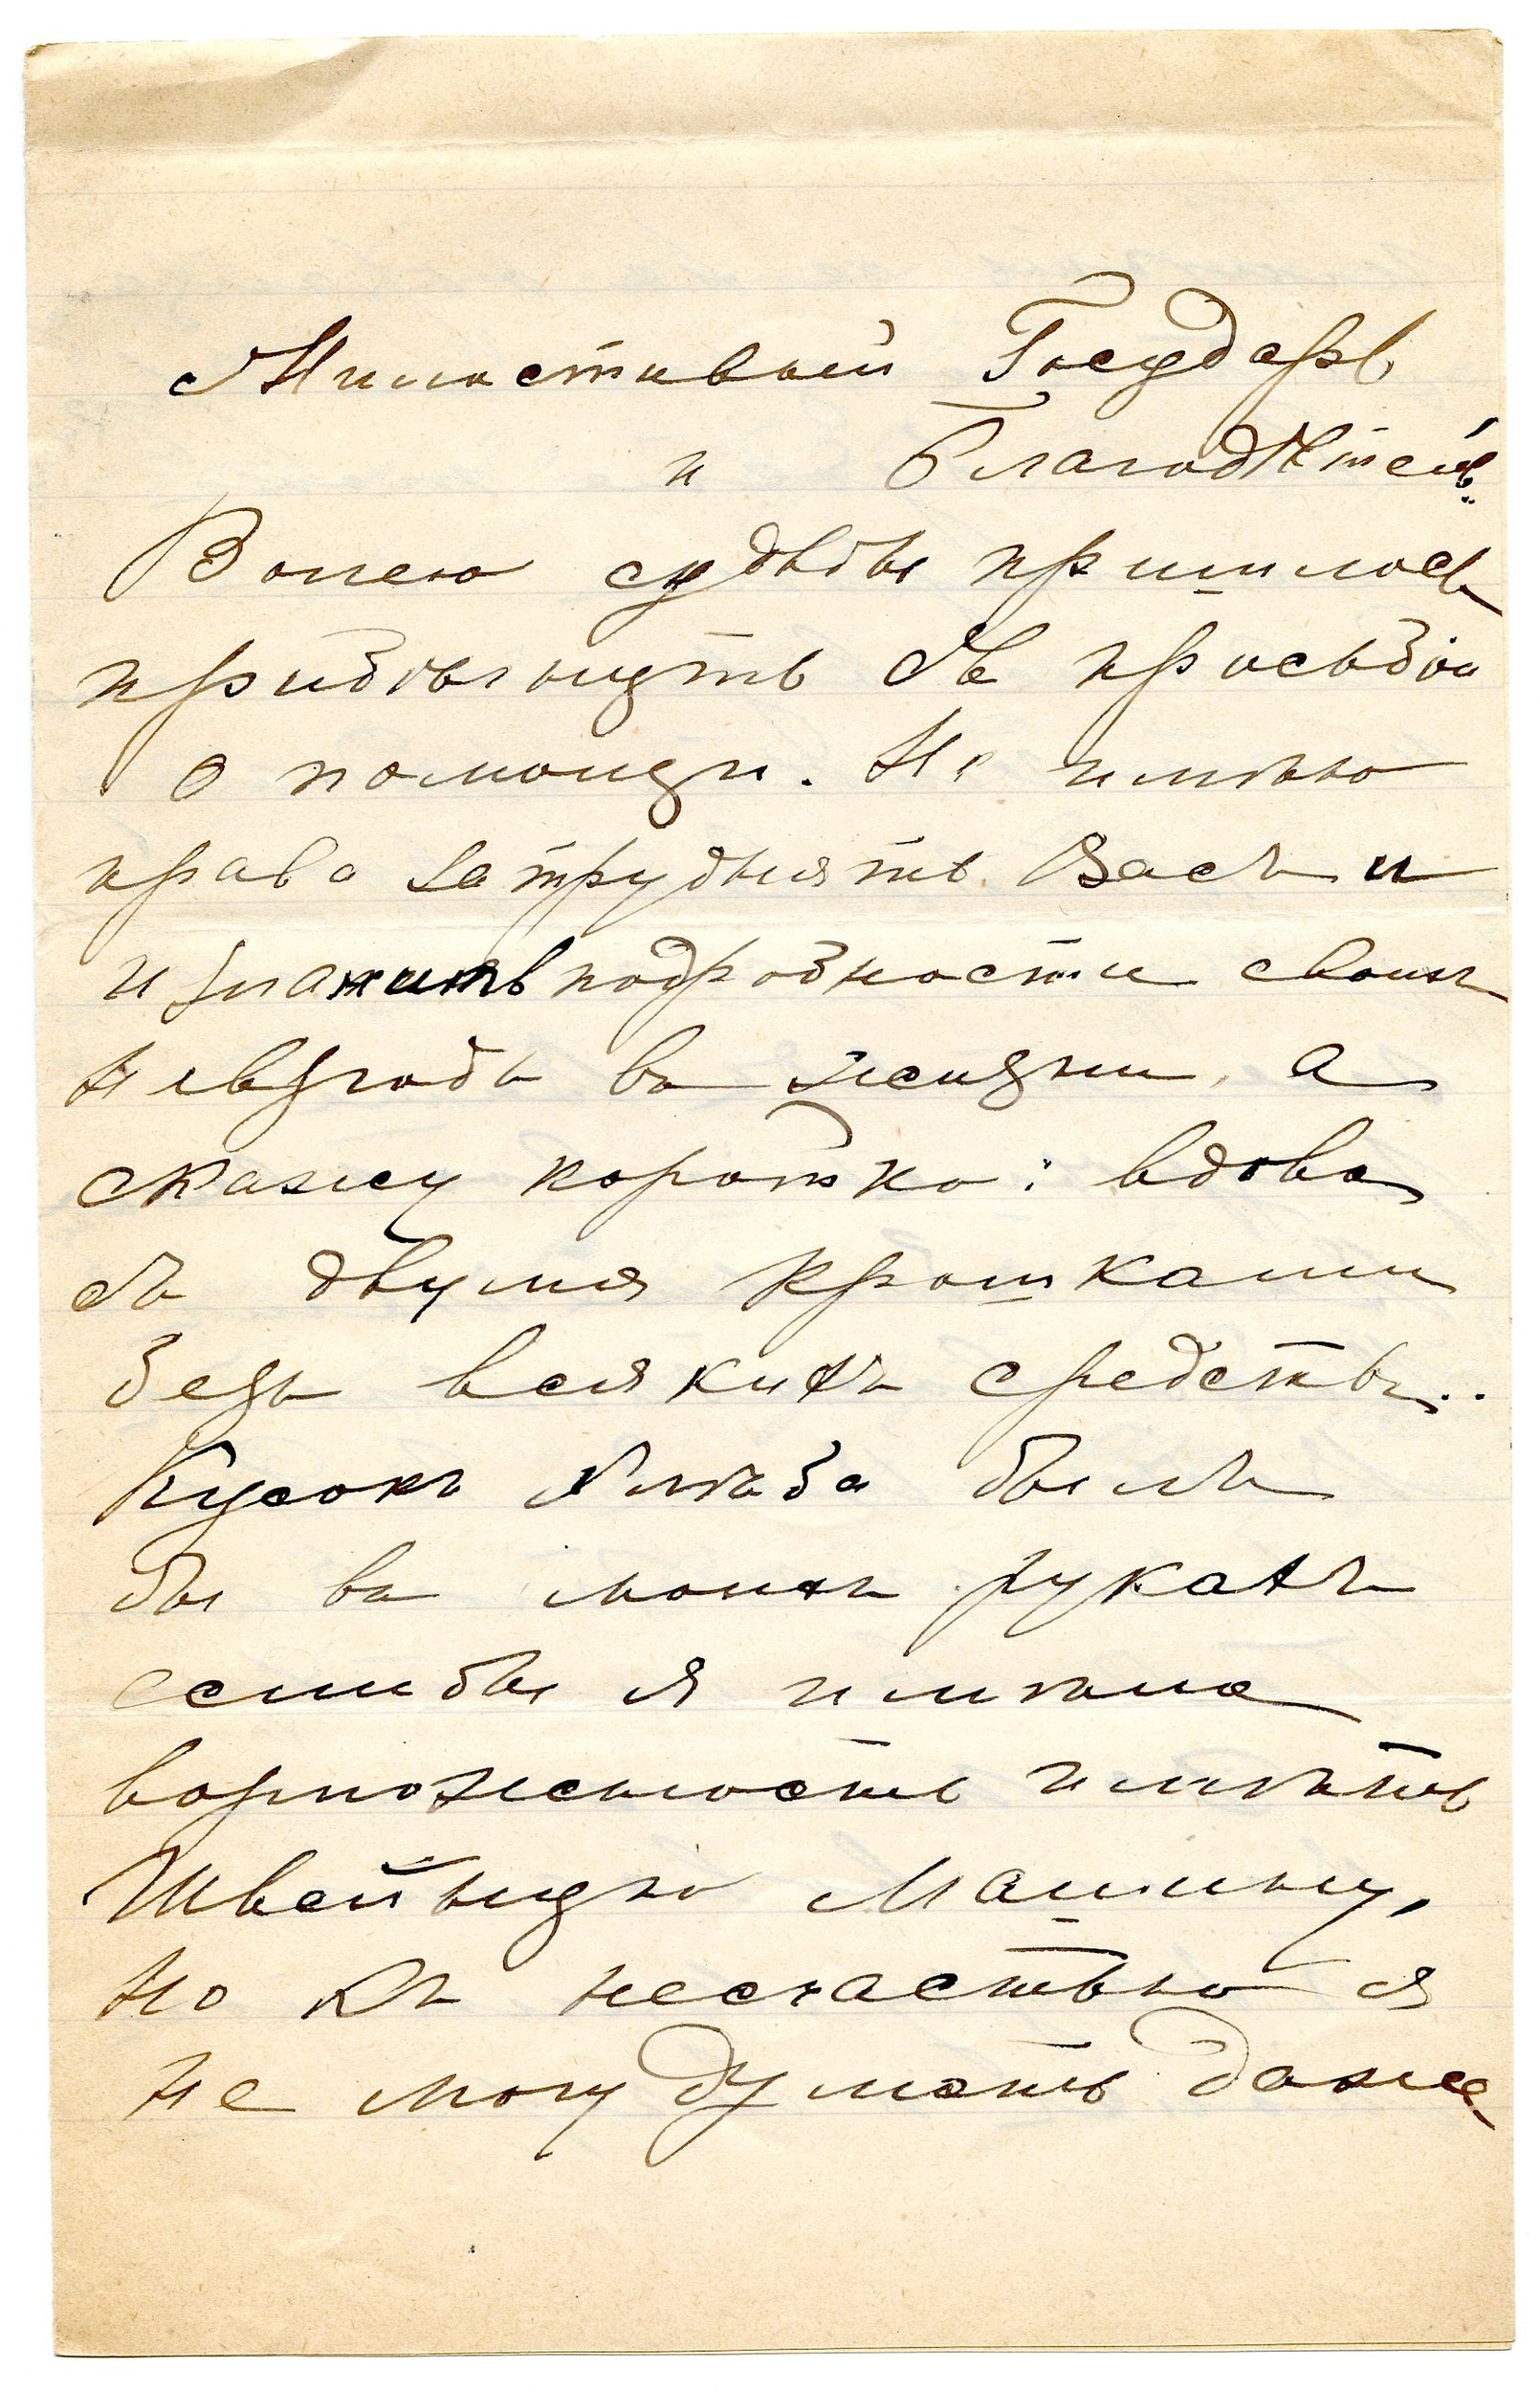 Милостивый Государь
и Благодѣтель!
Волею судьбы пришлось
прибѣгнуть съ просьбой
о помощи. Не имѣю
права затруднять Васъ и
изложить подробности своихъ
невзгодъ въ жизни, а
скажу коротко: вдова
съ двумя крошками
безъ всякихъ средствъ..
Кусокъ хлѣба былъ
бы въ моихъ рукахъ
еслибы я имѣла
возможность имѣть
Швейную Машину,
но къ несчастью я
не могу думать даже